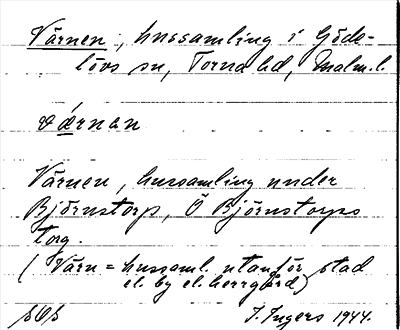 Värnen, hussamling i Göde-
lövs sn, Torna hd, Malm. l.
várnan
Värnen, hussamling under
Björnstorp, Ö Björnstorps
torg.
(Värn = hussaml. utanför stad
el. by el. herrgård)
I. Ingers 1944.